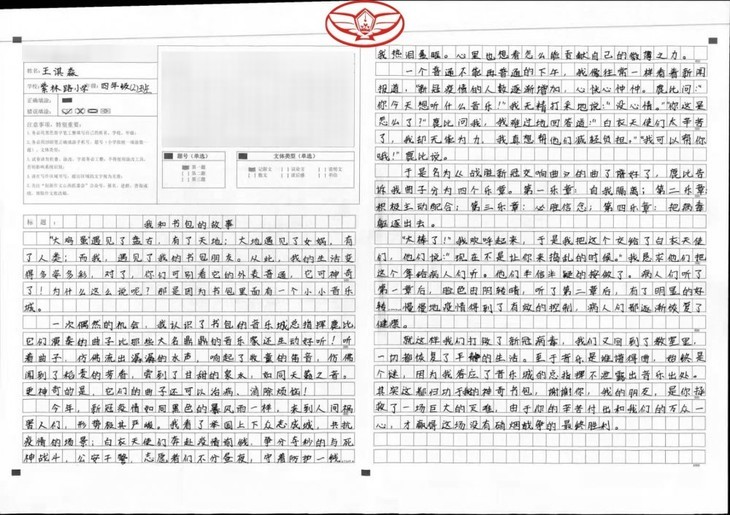 姓名：王淇淼
学校：紫林路小学 班级：四年级(2)班
正确填涂：
错误填涂：
注意事项：
题号（单选）
第一题
第二题
第三题
文体类型（单选）
记叙文
议论文
说明文
散文
读后感
书信
标题：
我和书包的故事
"大鸡蛋遇见了盘古，有了天地；大地遇见了女娲，有
了人类；而我，遇见了我的书包朋友。从此，我的生活变
得多姿多彩，对了，你们可别看它的外表普通，它可神奇
了！为什么这么说呢？那是因为书包里面有一个小小音乐
城。
一次偶然的机会，我认识了书包的音乐城总指挥鹿比
它们演奏的曲子比那些大名鼎鼎的音乐家还生动好听！听
着曲子，仿佛流出潺潺的水声，响起了牧童的笛音，仿佛
闻到了稻麦的芳香，尝到了甘甜的泉水，如同天籁之音。
更神奇的是，它们的曲子还可以治病，消除烦恼！
今年，新冠疫情如同黑色的暴风雨一样，来到人间祸
害人们，形势极其严峻。我看了举国上下众志成城，共抗
疫情的场景；白衣天使们奔赴疫情前线，争分夺秒的与死
神战斗，公安干警，志愿者们不分昼夜，守着防护一线。
我热泪盈眶。心里也想着怎么能贡献自己的微薄之力。
一个普通不能再普通的下午，我像往前一样看着新闻
报道，"新冠疫情的人数逐渐增加，心快心忡忡。鹿比问：
你今天想听什么音乐！"我无精打采地说："没心情。""你这是
怎么了？"鹿比问我，我难过地回答道："白衣天使们太辛苦
了，我却无能为力，我真想帮他们减轻负担。""我可以帮你
哦！"鹿比说。
于是名为《战胜新冠交响曲》的曲子谱好了，鹿比告
诉我曲子分为四个乐章。第一乐章：自我隔离；第二乐章
积极主动配合；第三乐章：必胜信念；第四乐章：把病毒
驱逐出去。
"太棒了！"我欢呼起来，于是我把这个交给了白衣天使
们，他们说："现在不是让你来捣乱的时候。"我恳求他们把
这个拿给病人们听。他们半信半疑的按做了。病人们听了
第一章后，脸色由阴转晴，听了第二章后，有了明显的好
转...慢慢地疫情得到了有效的控制，病人们都逐渐恢复了
健康。
就这样我们打败了新冠病毒，我们又回到了教室里，
一切都恢复了平静的生活。至于音乐是谁谱得得，始终是
个谜，因为我答应了音乐城的总指挥不泄露出音乐出处。
其实这都归功于我的神奇书包，谢谢你，我的朋友，是你拯
救了一场巨大的灾难，由于你的辛苦付出和我们的万众一
心，才赢得这场没有硝烟战争的最终胜利。